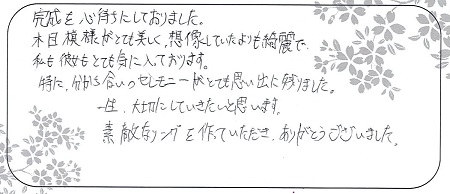 完成を心待ちにしておりました。
木目模様がとても美しく、想像していたよりも綺麗で
私も彼もとても気に入っております。
特に、分かち合いのセレモニーがとても思い出に残りました。
一生、大切にしていきたいと思います。
素敵なリングを作っていただき、ありがとうございました。